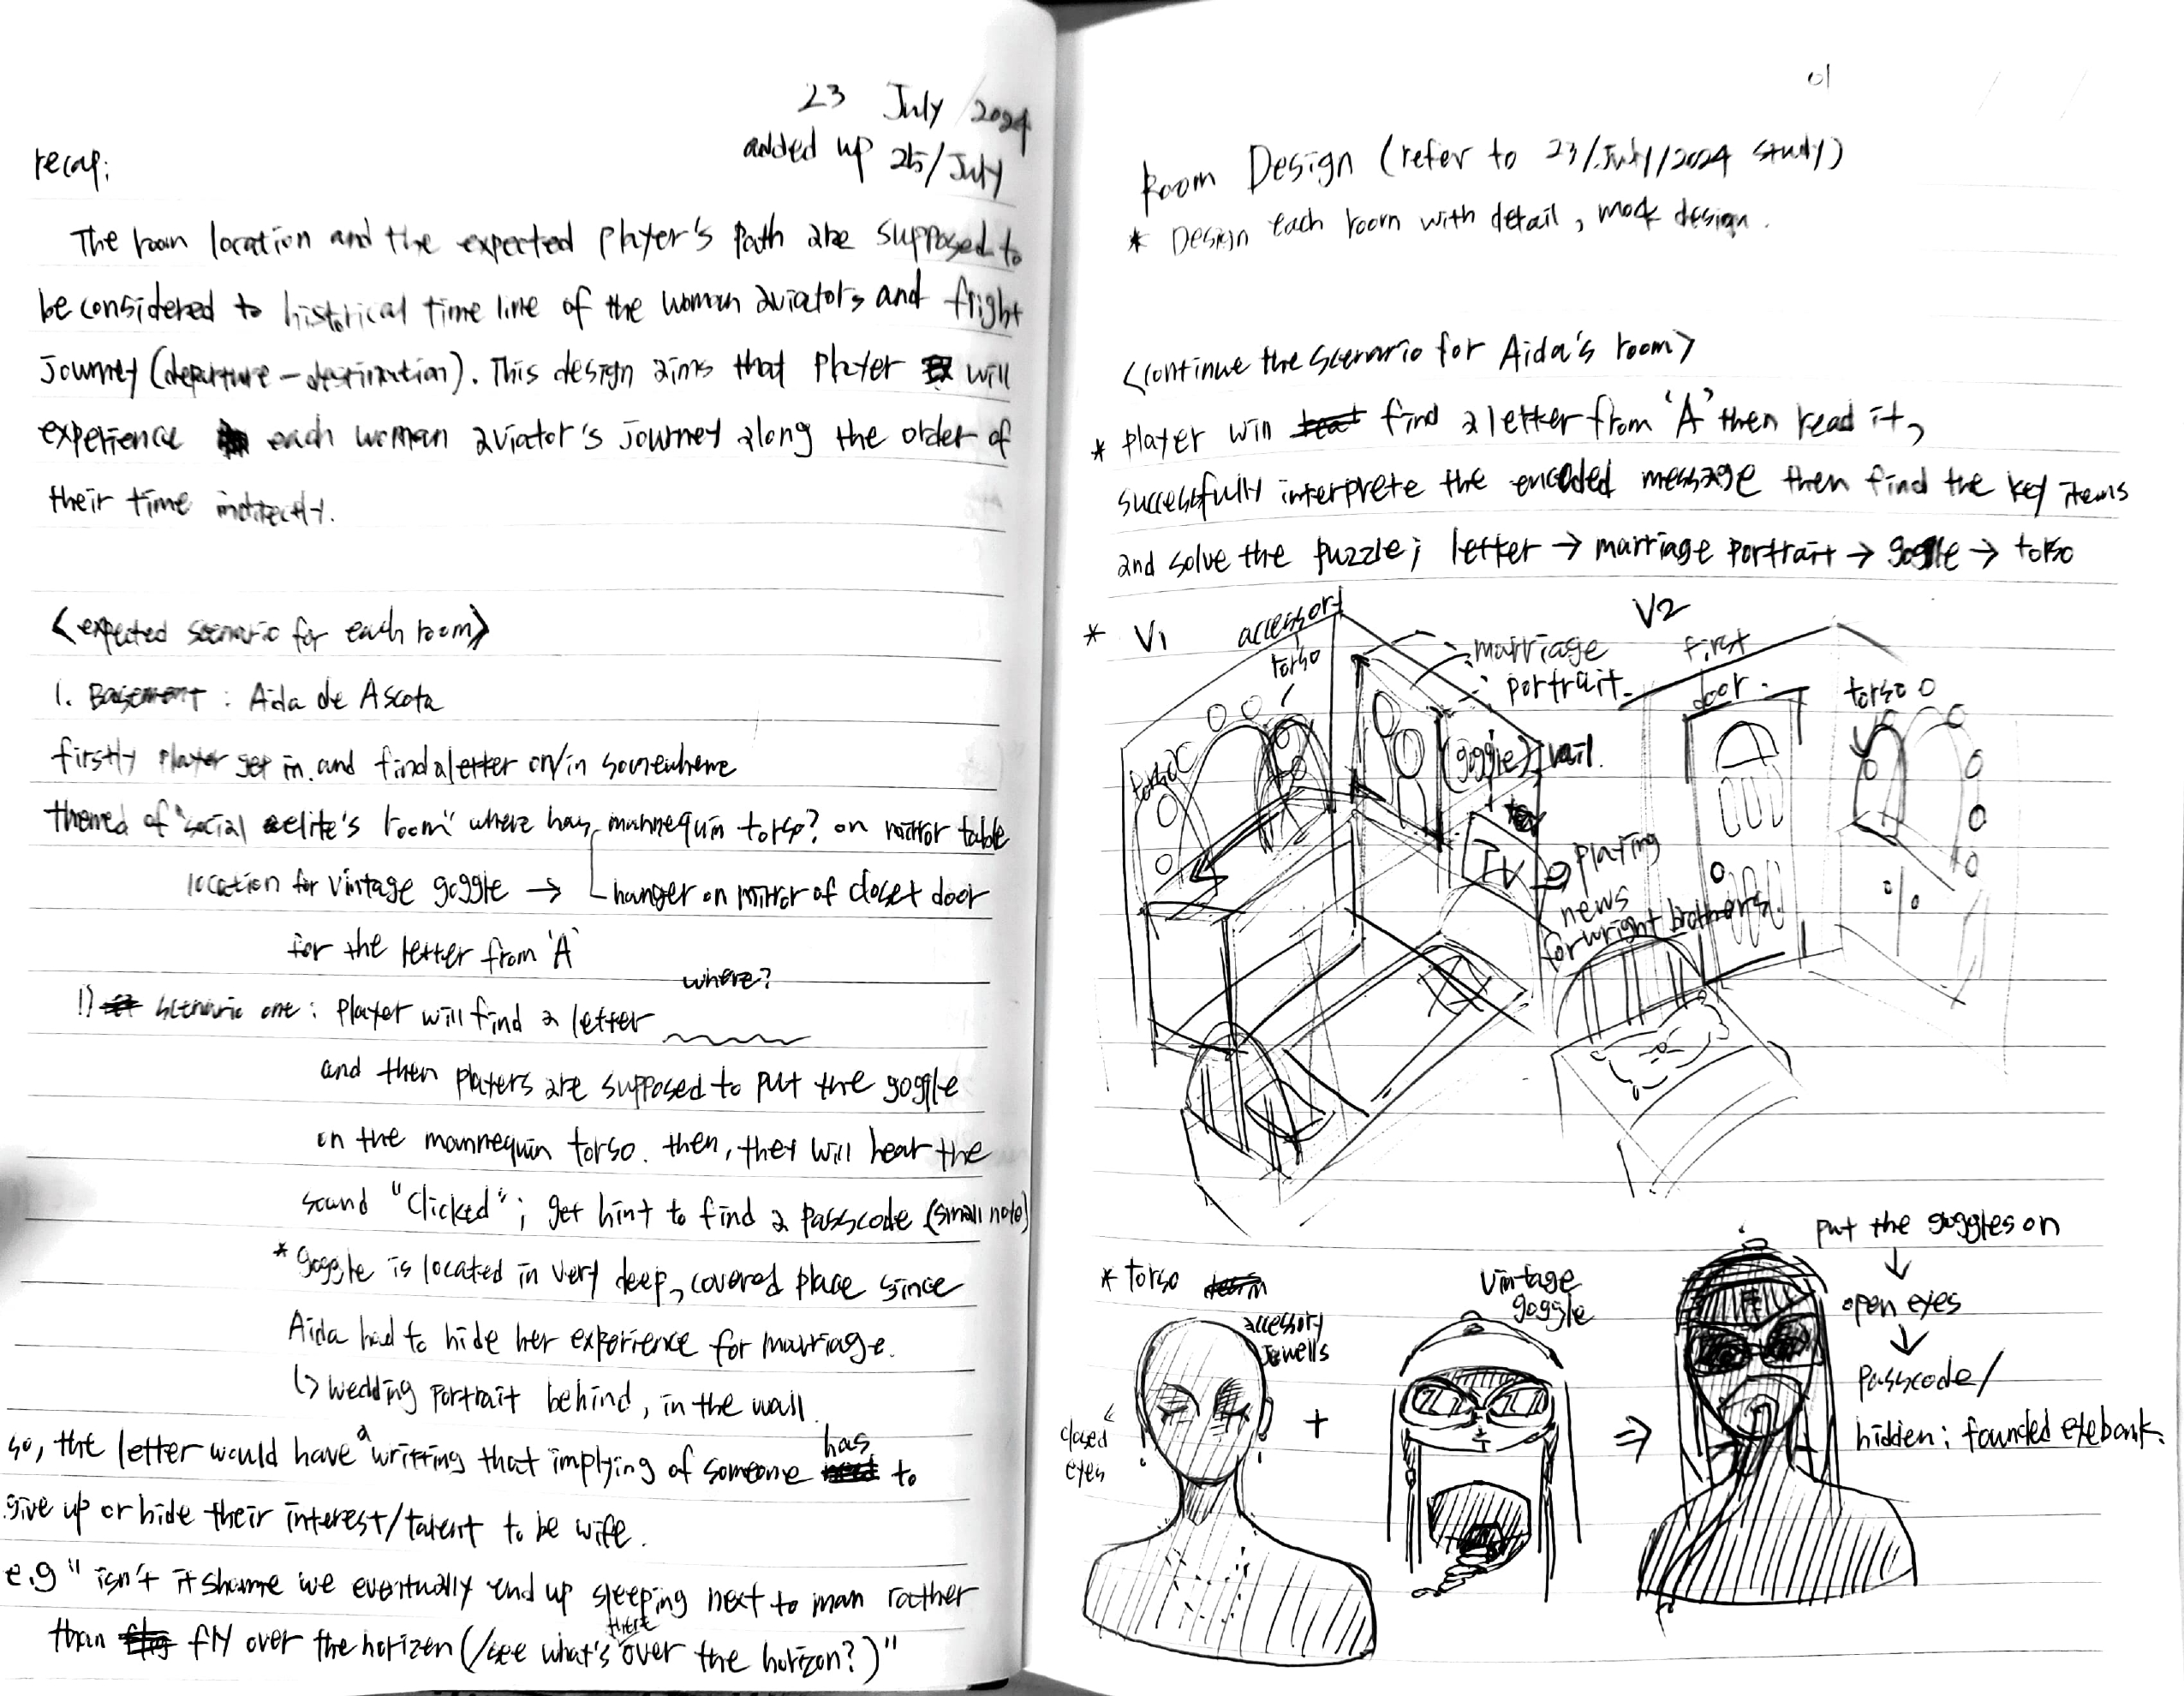 23 July / 2024
added up 25/July
recap:
The room location and the expected player's path are supposed to
be considered to historical time line of the woman aviators and fright
Journey (departure - destination). This design aims that player will
experience each woman aviator's journey along the order of
their time indirectly.
<expected scenario for each room>
1. Basement : Aida de Ascota
firstly player get in. and find a letter on/in somewhere
themed of "social elite's room" where has mannequin torso? on mirror table
location for vintage goggle → hanger on mirror of closet door
for the letter from 'A'
where?
1) scenario one : player will find a letter
and then players are supposed to put the goggle
on the mannequin torso. then, they will hear the
sound "clicked" ; get hint to find a passcode (small note)
* goggle is located in very deep, covered place since
Aida had to hide her experience for marriage.
↳ wedding portrait behind, in the wall.
so, the letter would have a writting that implying of someone has to
give up or hide their interest/talent to be wife.
e.g " isn't it shame we eventually end up sleeping next to man rather
than fly over the horizen (/see what's there over the horizon?)"
01
Room Design (refer to 23/July/2024 study)
* Design each room with detail, mock design.
<continue the scenario for Aida's room>
* player will find a letter from 'A' then read it,
successfully interprete the encoded message then find the key items
and solve the puzzle; letter → marriage portrait → goggle → torso
* V1
accessory
torso
torso
marriage
portrait
(goggle) vail.
TV → playing
news
for wright brothers.
V2
first
door
torso
* torso
accessory
Jewells
closed
eyes
+
vintage
goggle
⇒
put the goggles on
↓
open eyes
↓
passcode/
hidden; founded eyebank.